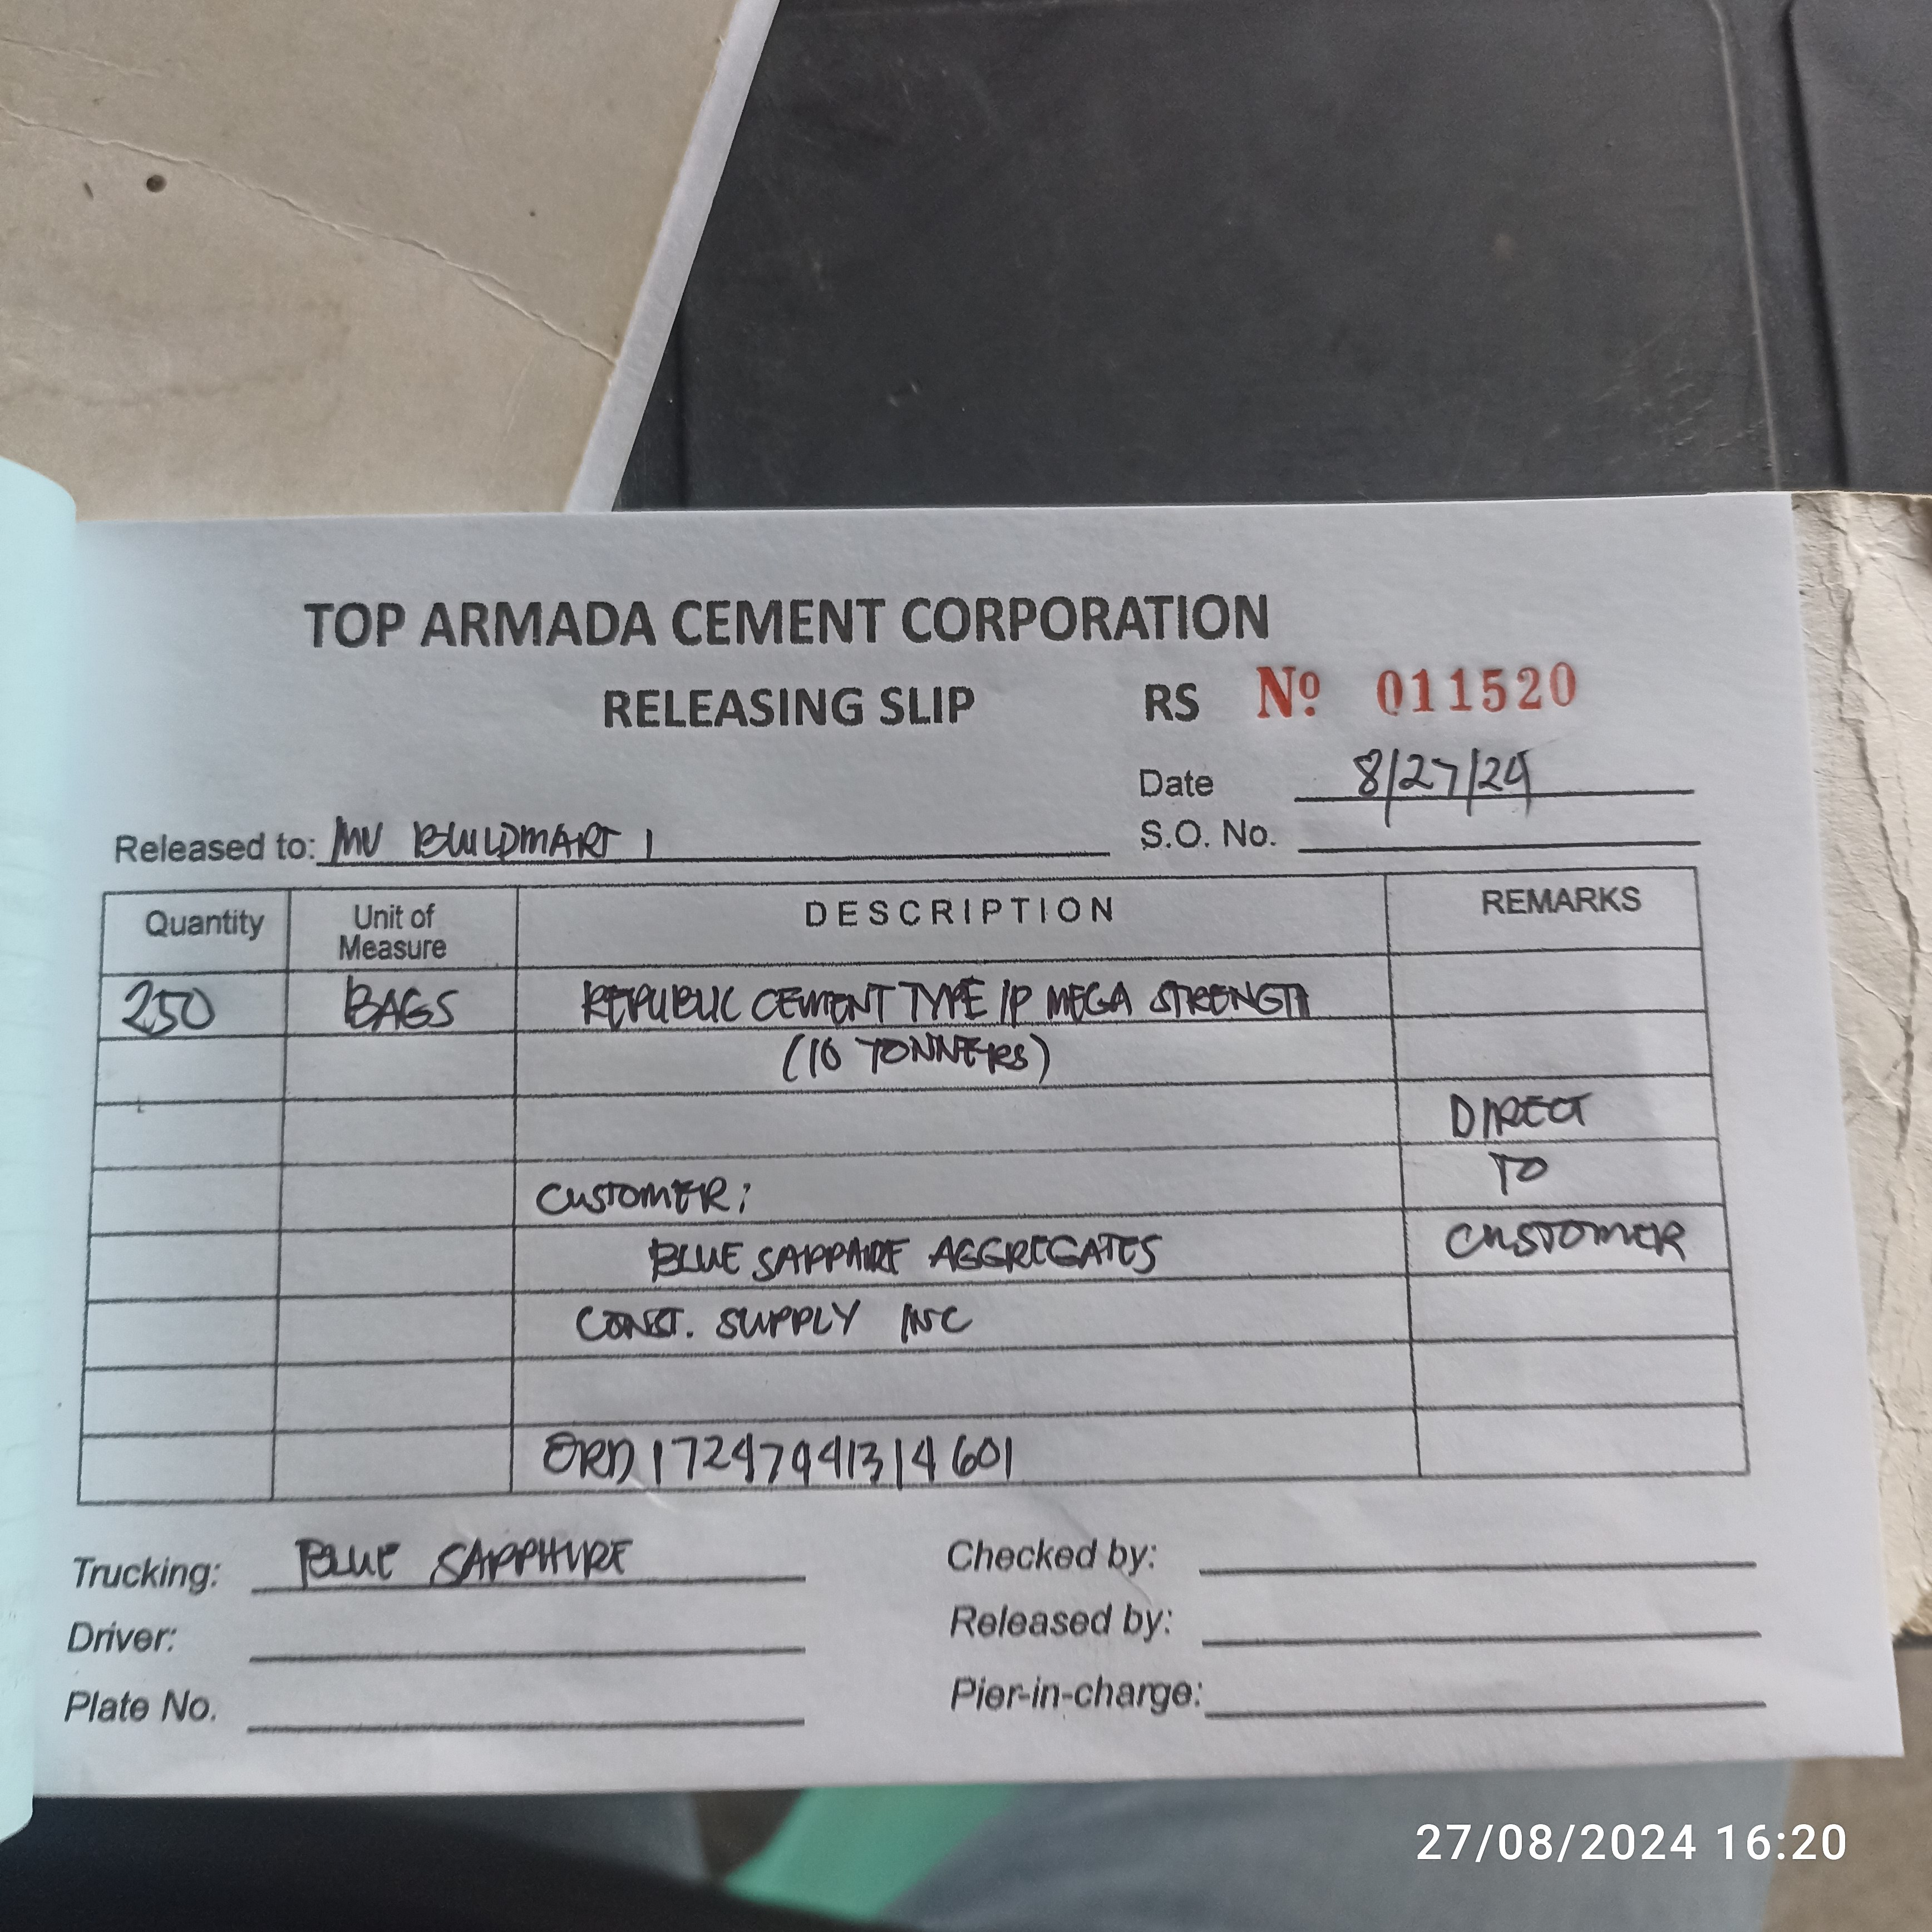 TOP ARMADA CEMENT CORPORATION
RELEASING SLIP RS Nº 011520
Date 8/27/24
Released to: MV BUILDMART 1 S.O. No.
Quantity Unit of Measure DESCRIPTION REMARKS
250 BAGS REPUBLIC CEMENT TYPE 1P MEGA STRENGTH
(10 TONNERS)
DIRECT
CUSTOMER: TO
BLUE SAPPHIRE AGGREGATES CUSTOMER
CONST. SUPPLY INC
ORD 17247941314601
Trucking: BLUE SAPPHIRE Checked by:
Driver: Released by:
Plate No. Pier-in-charge:
27/08/2024 16:20